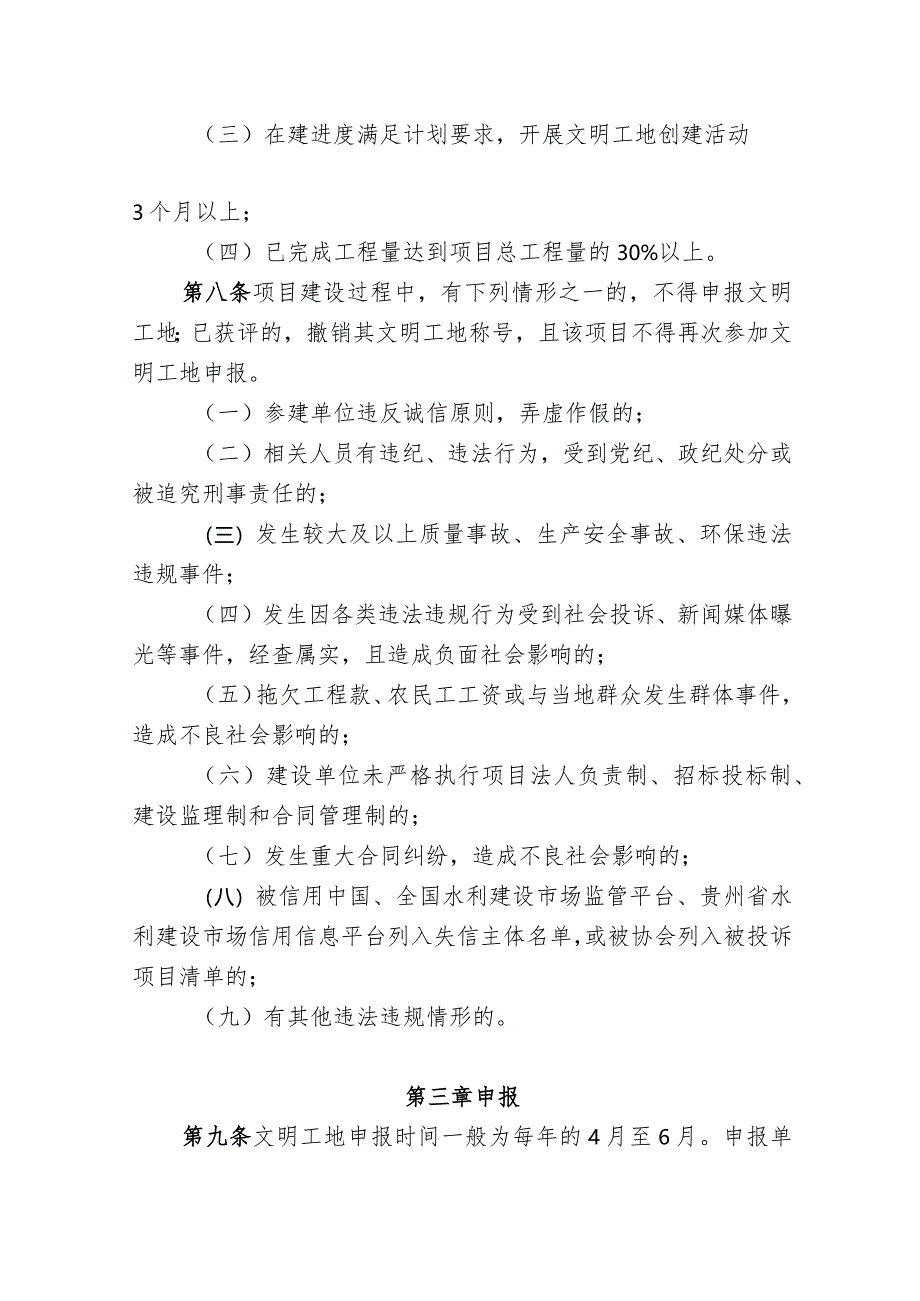 （三）在建进度满足计划要求，开展文明工地创建活动
3个月以上；
（四）已完成工程量达到项目总工程量的30%以上。
第八条项目建设过程中，有下列情形之一的，不得申报文明
工地；已获评的，撤销其文明工地称号，且该项目不得再次参加文
明工地申报。
（一）参建单位违反诚信原则，弄虚作假的；
（二）相关人员有违纪、违法行为，受到党纪、政纪处分或
被追究刑事责任的；
(三) 发生较大及以上质量事故、生产安全事故、环保违法
违规事件；
（四）发生因各类违法违规行为受到社会投诉、新闻媒体曝
光等事件，经查属实，且造成负面社会影响的；
（五）拖欠工程款、农民工工资或与当地群众发生群体事件，
造成不良社会影响的；
（六）建设单位未严格执行项目法人负责制、招标投标制、
建设监理制和合同管理制的；
（七）发生重大合同纠纷，造成不良社会影响的；
(八) 被信用中国、全国水利建设市场监管平台、贵州省水
利建设市场信用信息平台列入失信主体名单，或被协会列入被投诉
项目清单的；
（九）有其他违法违规情形的。
第三章申报
第九条文明工地申报时间一般为每年的4月至6月。申报单